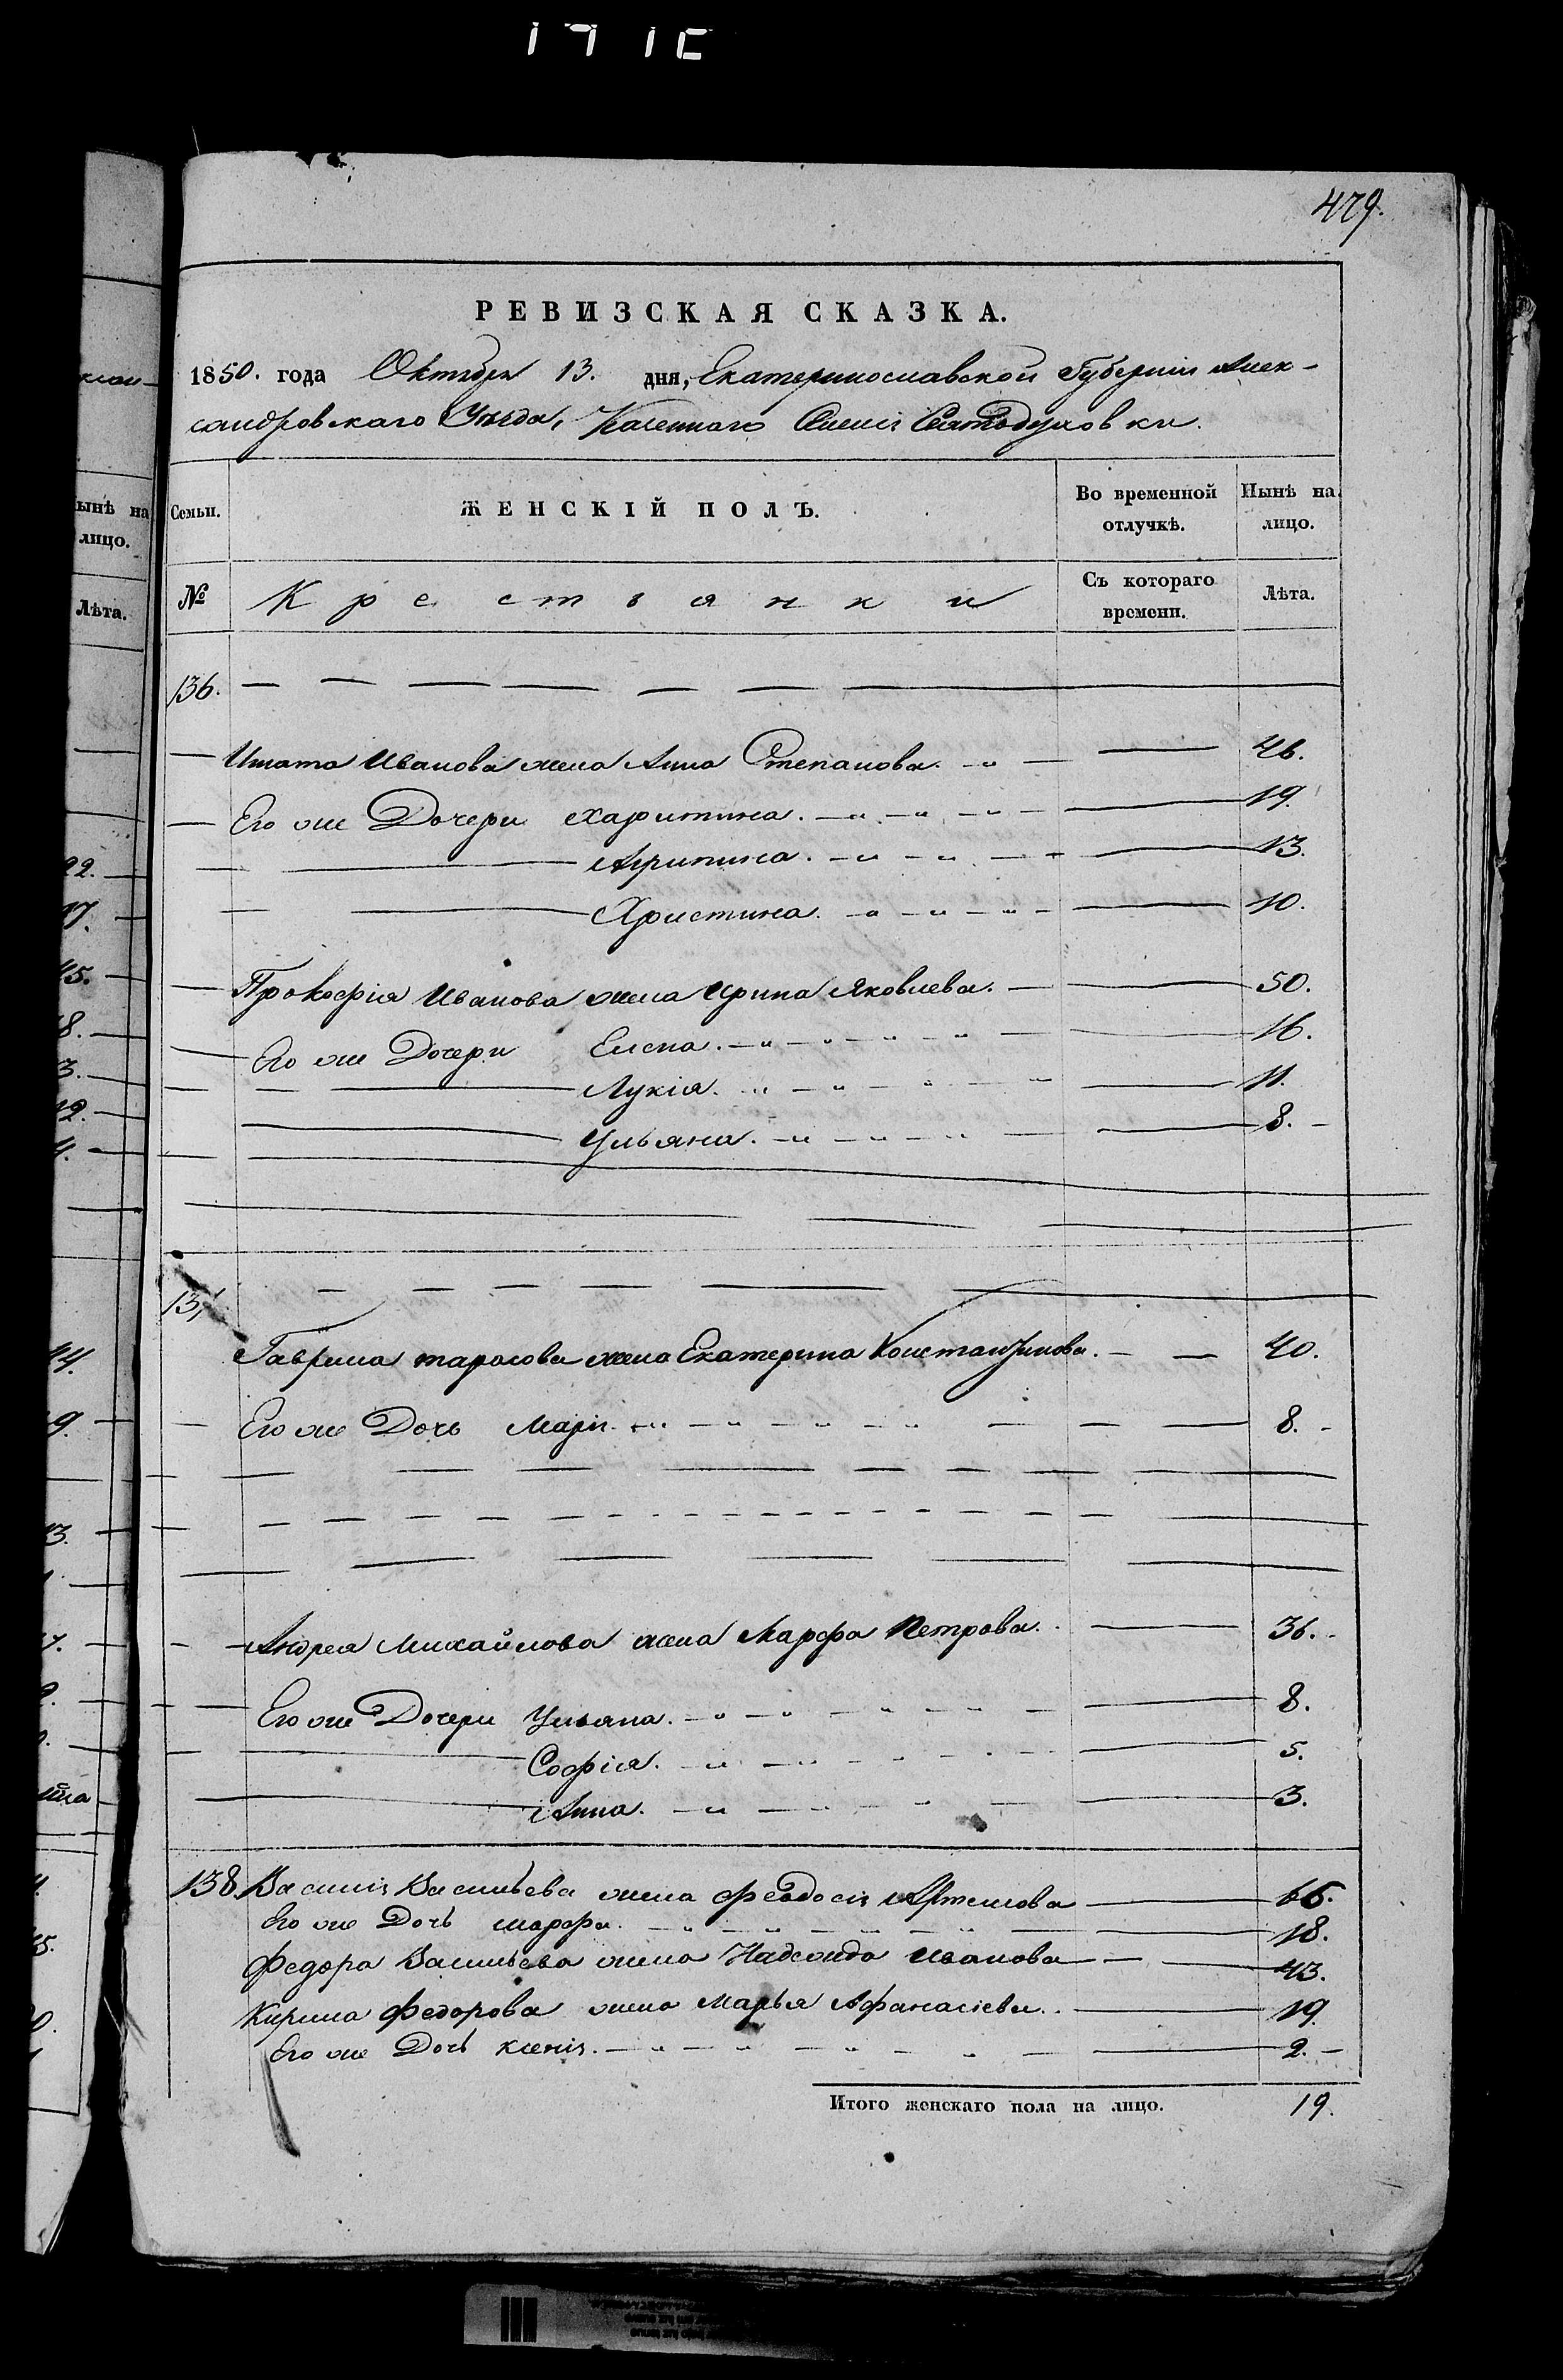 479.
РЕВИЗСКАЯ СКАЗКА.
1850. года Октября 13. дня, Екатеринославской Губерніи Алек-
сандровскаго Уѣзда, Казеннаго Селенія Святодуховки.
Семьи. ЖЕНСКІЙ ПОЛЪ. Во временной отлучкѣ. Нынѣ на лицо.
№ Крестьянки Съ котораго времени. Лѣта.
136.
Игната Иванова жена Анна Степанова. 46.
Его же Дочери Харитина. 19.
Агрипина. 13.
Христина. 10.
Прокофія Иванова жена Ирина Яковлева. 50.
Его же Дочери Елена. 16.
Лукія. 11.
Ульяна. 8.
Гаврила Тарасова жена Екатерина Константинова. 40.
Его же Дочь Марія. 8.
Андрея Михайлова жена Марфа Петрова. 36.
Его же Дочери Ульяна. 8.
Софія. 5.
Анна. 3.
138. Василія Васильева жена Феодосія Артемова 66.
Его же Дочь Марфа. 18.
Федора Васильева жена Надежда Иванова 43.
Кирила Федорова жена Марья Афанасіева. 19.
Его же Дочь Ксенія. 2.
Итого женскаго пола на лицо. 19.
ынѣ на
лицо.
Лѣта.
22.
17.
15.
8.
3.
12.
4.
14.
9.
13.